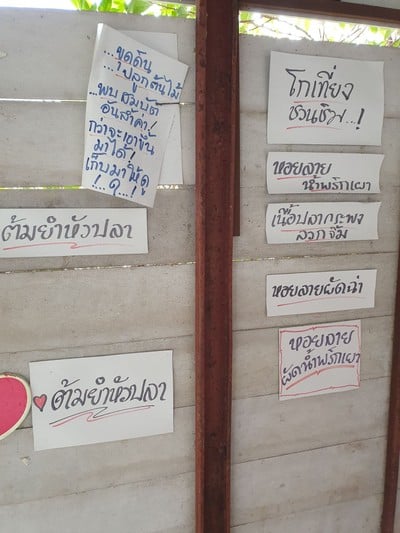 ...ขุดดิน
...! ปลูกต้นไม้
...พบสมบัติ
อันล้ำค่า!
กว่าจะเอาขึ้น
มาได้!
เก็บมาให้ดู
!...ๆ...!
ต้มยำหัวปลา
ต้มยำหัวปลา
โกเที่ยง
ชวนชิม...!
หอยลาย
น้ำพริกเผา
เนื้อปลากระพง
ลวกจิ้ม
หอยลายผัดฉ่า
หอยลาย
ผัดน้ำพริกเผา